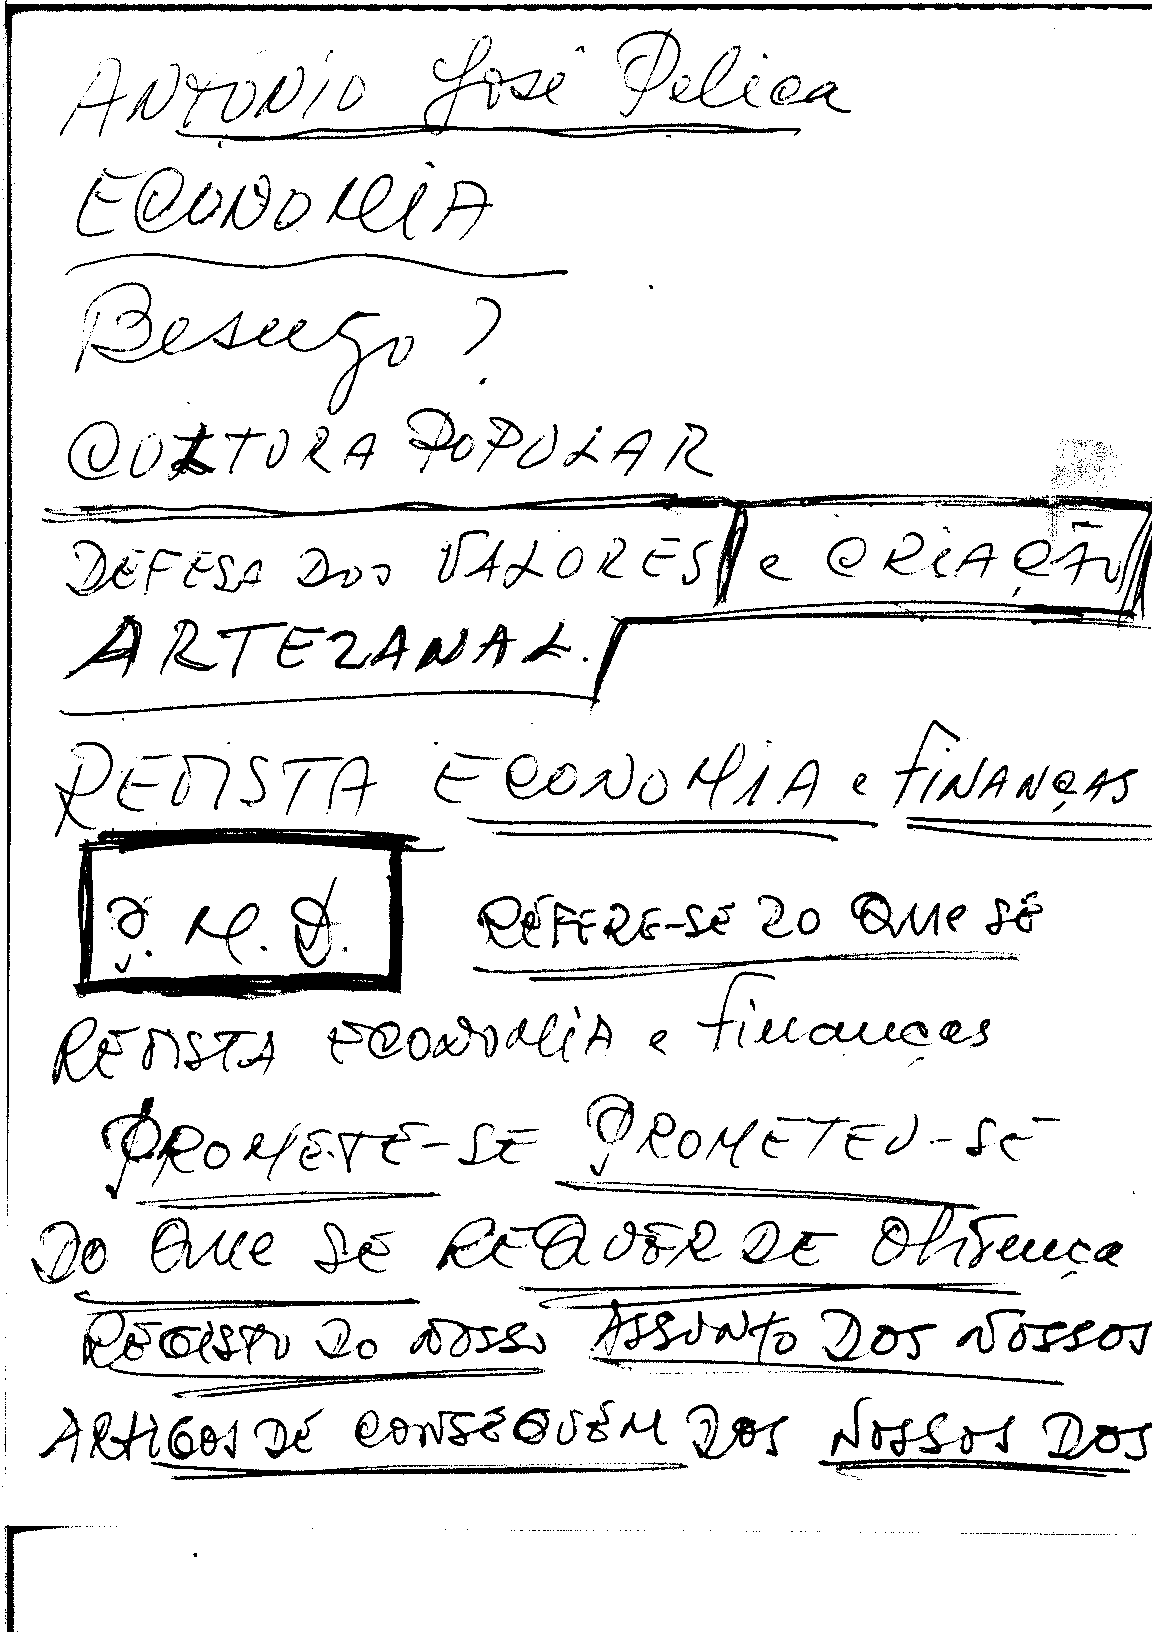 ANTÓNIO José Pelica
ECONOMIA
Besugo?
CULTURA POPULAR
DEFESA DOS VALORES e CRIAÇÃO
ARTEZANAL.
REVISTA ECONOMIA e FINANÇAS
P. M. D. REFERE-SE DO QUE SE
REVISTA ECONOMIA e finanças
PROMETE-SE PROMETEU-SE
DO QUE SE REQUÉR DE
REGISTO DO NOSSO ASSUNTO DOS NOSSOS
ARTIGOS DE CONSEQUÊM DOS NOSSOS DOS